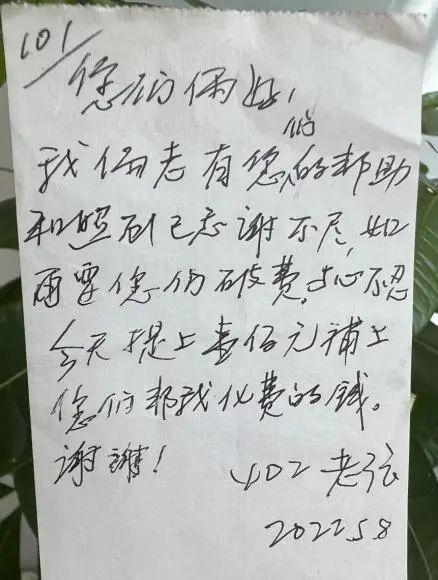 101
您们俩好!
我俩老有您们的帮助
和照顾已忘谢不尽,如
再要您们破费,与心不忍
今天提上壹佰元補上
您们帮我化费的钱。
谢谢!
402 老张
2022.5.8